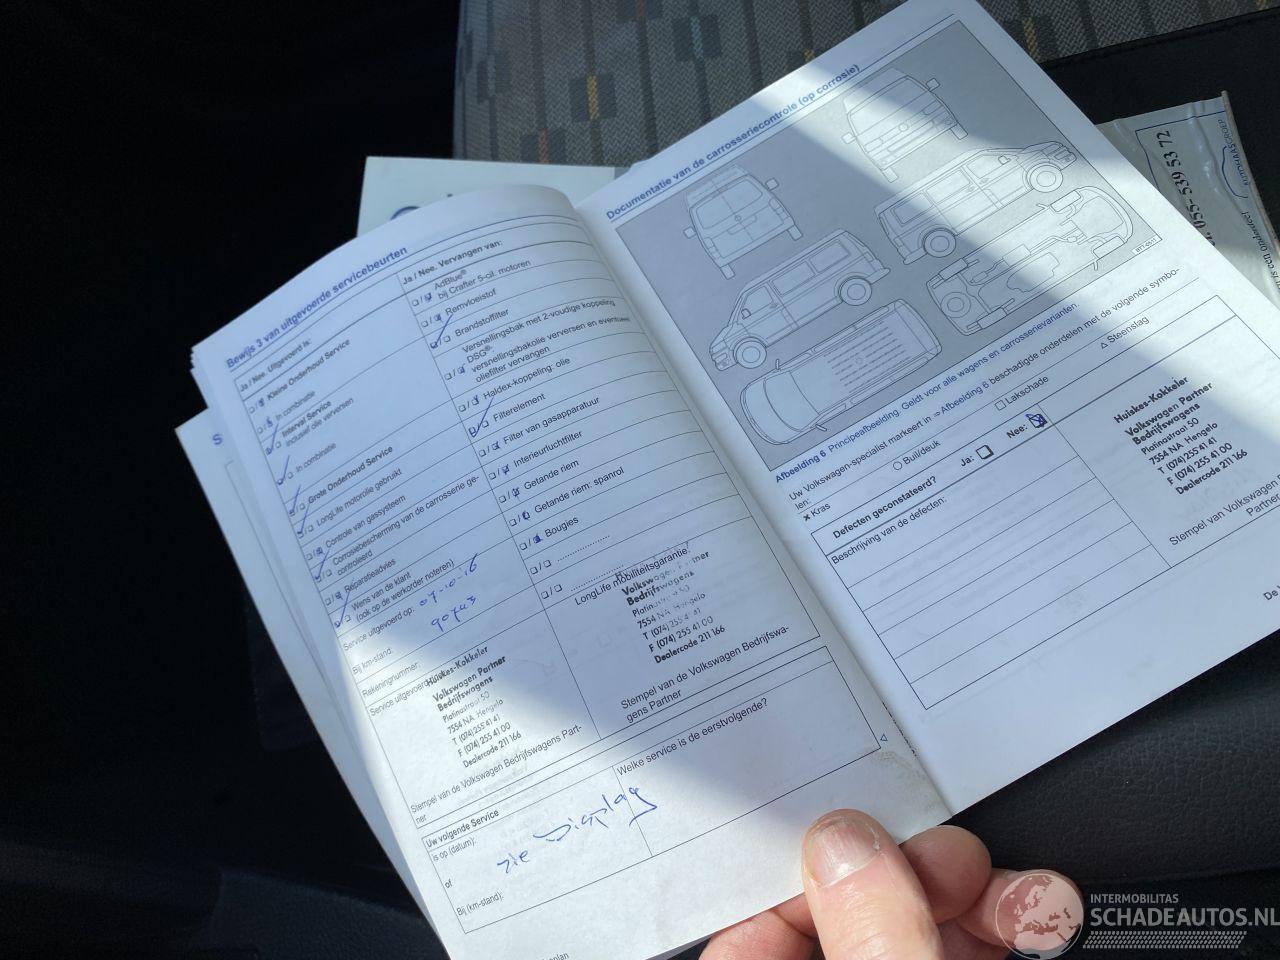 Bewijs 3 van uitgevoerde servicebeurten
Ja / Nee. Uitgevoerd is:
Kleine Onderhoud Service
In combinatie
Interval Service
inclusief olie verversen
In combinatie
Grote Onderhoud Service
LongLife motorolie gebruikt
Controle van gassysteem
Corrosiebescherming van de carrosserie ge-
controleerd
Reparatieadvies
Wens van de klant
(ook op de werkorder noteren)
Service uitgevoerd op: 07-10-16
Bij km-stand:
Rekeningnummer:
Service uitgevoerd
Huiskes-Kokkeler
Volkswagen Partner
Bedrijfswagens
Platinastraat 50
7554 NA Hengelo
T (074) 255 41 41
F (074) 255 41 00
Dealercode 211 166
Stempel van de Volkswagen Bedrijfswagens Part-
ner
Ja / Nee. Vervangen van:
AdBlue®
bij Crafter 5-cil. motoren
Remvloeistof
Brandstoffilter
Versnellingsbak met 2-voudige koppeling
DSG®:
versnellingsbakolie verversen en eventueel
oliefilter vervangen
Haldex-koppeling: olie
Filterelement
Filter van gasapparatuur
Interieurluchtfilter
Getande riem
Getande riem: spanrol
Bougies
LongLife mobiliteitsgarantie:
Volkswagen Partner
Bedrijfswagens
7554 NA Hengelo
T (074) 255 41 41
F (074) 255 41 00
Dealercode 211 166
Stempel van de Volkswagen Bedrijfswa-
gens Partner
Uw volgende Service
is op (datum):
of
Bij (km-stand):
zie Display
Welke service is de eerstvolgende?
Documentatie van de carrosseriecontrole (op corrosie)
Afbeelding 6 Principeafbeelding. Geldt voor alle wagens en carrosserievarianten.
Uw Volkswagen-specialist markeert in ⇒ Afbeelding 6 beschadigde onderdelen met de volgende symbo-
len:
× Kras
○ Buil/deuk
□ Lakschade
△ Steenslag
Defecten geconstateerd?
Ja:
Nee:
Beschrijving van de defecten:
Huiskes-Kokkeler
Volkswagen Partner
Bedrijfswagens
Platinastraat 50
7554 NA Hengelo
T (074) 255 41 41
F (074) 255 41 00
Dealercode 211 166
Stempel van Volkswagen
Partner
De
055-539 53 72
INTERMOBILITAS
SCHADEAUTOS.NL